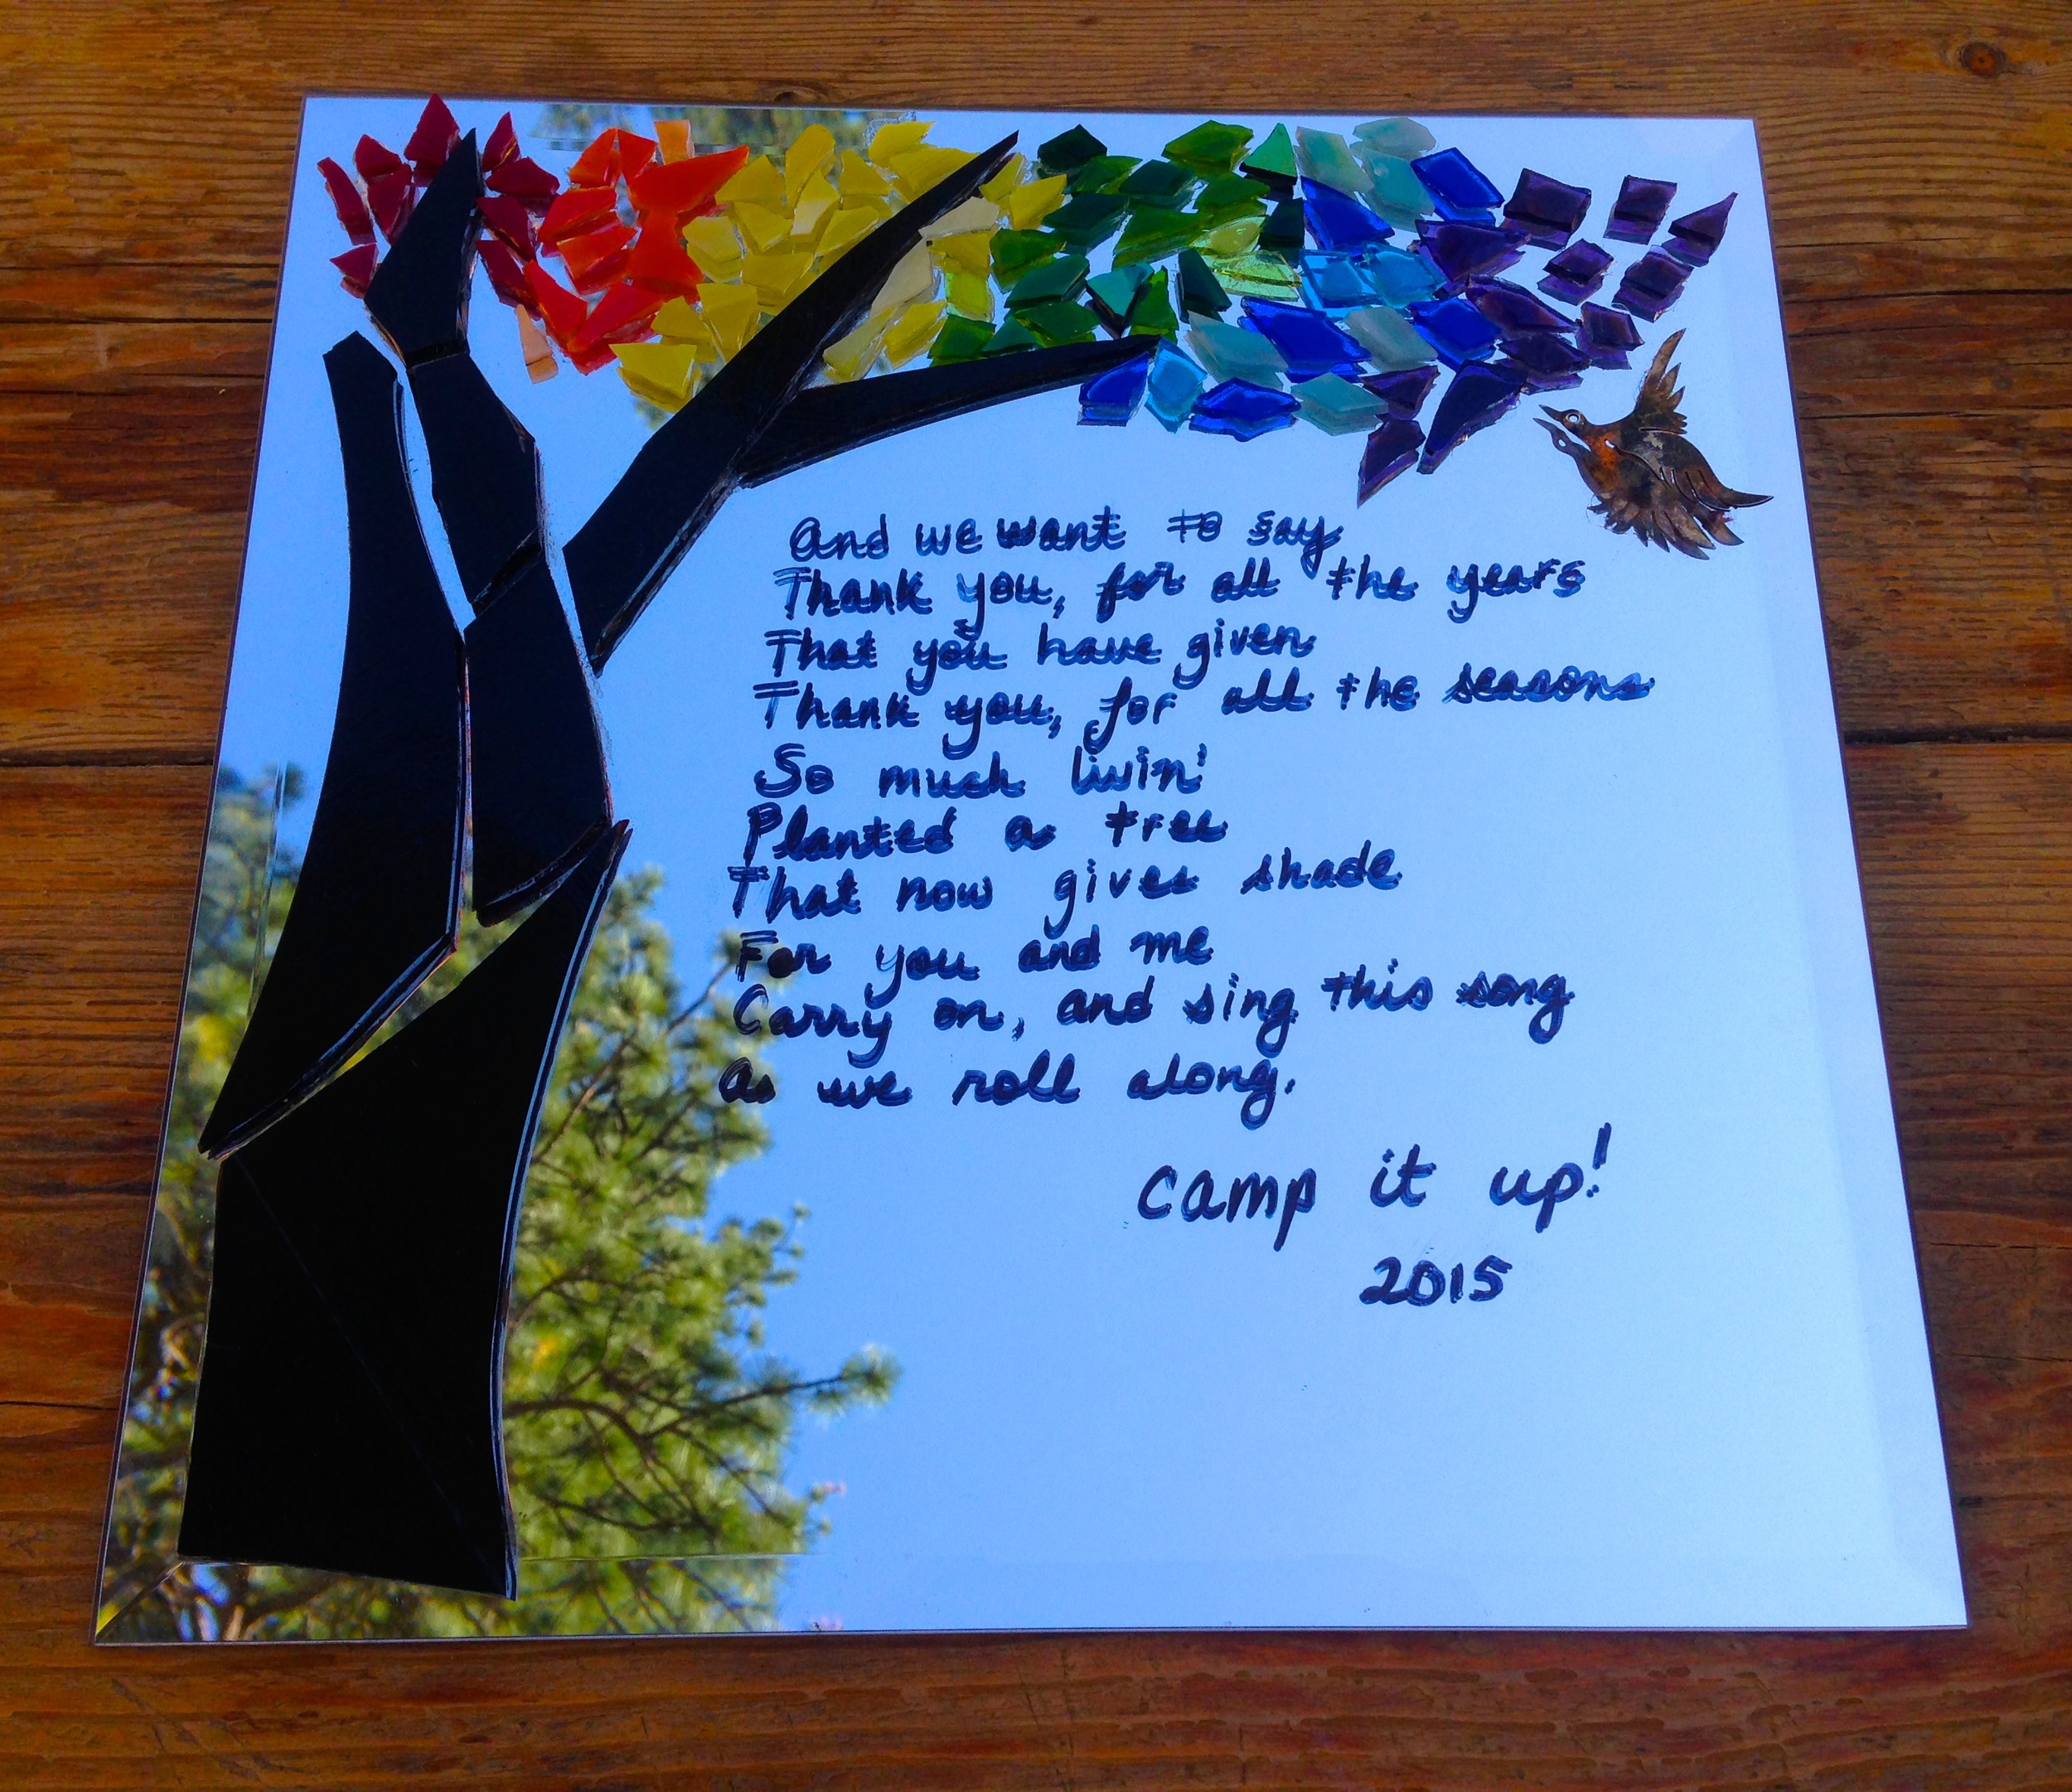 And we want to say
Thank you, for all the years
That you have given
Thank you, for all the seasons
So much livin'
Planted a tree
That now gives shade
For you and me
Carry on, and sing this song
as we roll along.
camp it up!
2015